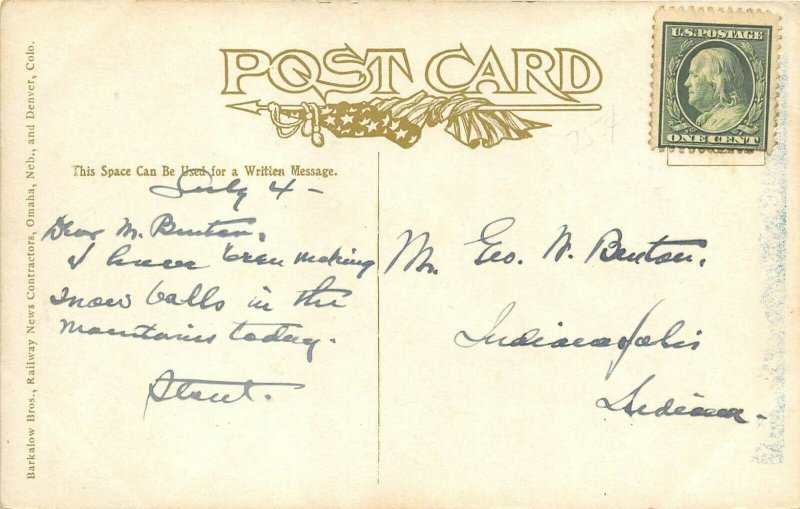 POST CARD
U.S. POSTAGE
ONE CENT
Barkalow Bros., Railway News Contractors, Omaha, Neb., and Denver, Colo.
This Space Can Be Used for a Written Message.
July 4 -
Dear Mr. Benton,
I have been making
snow balls in the
mountains today.
Stout.
Mr. Geo. W. Benton,
Indianapolis
Indiana.